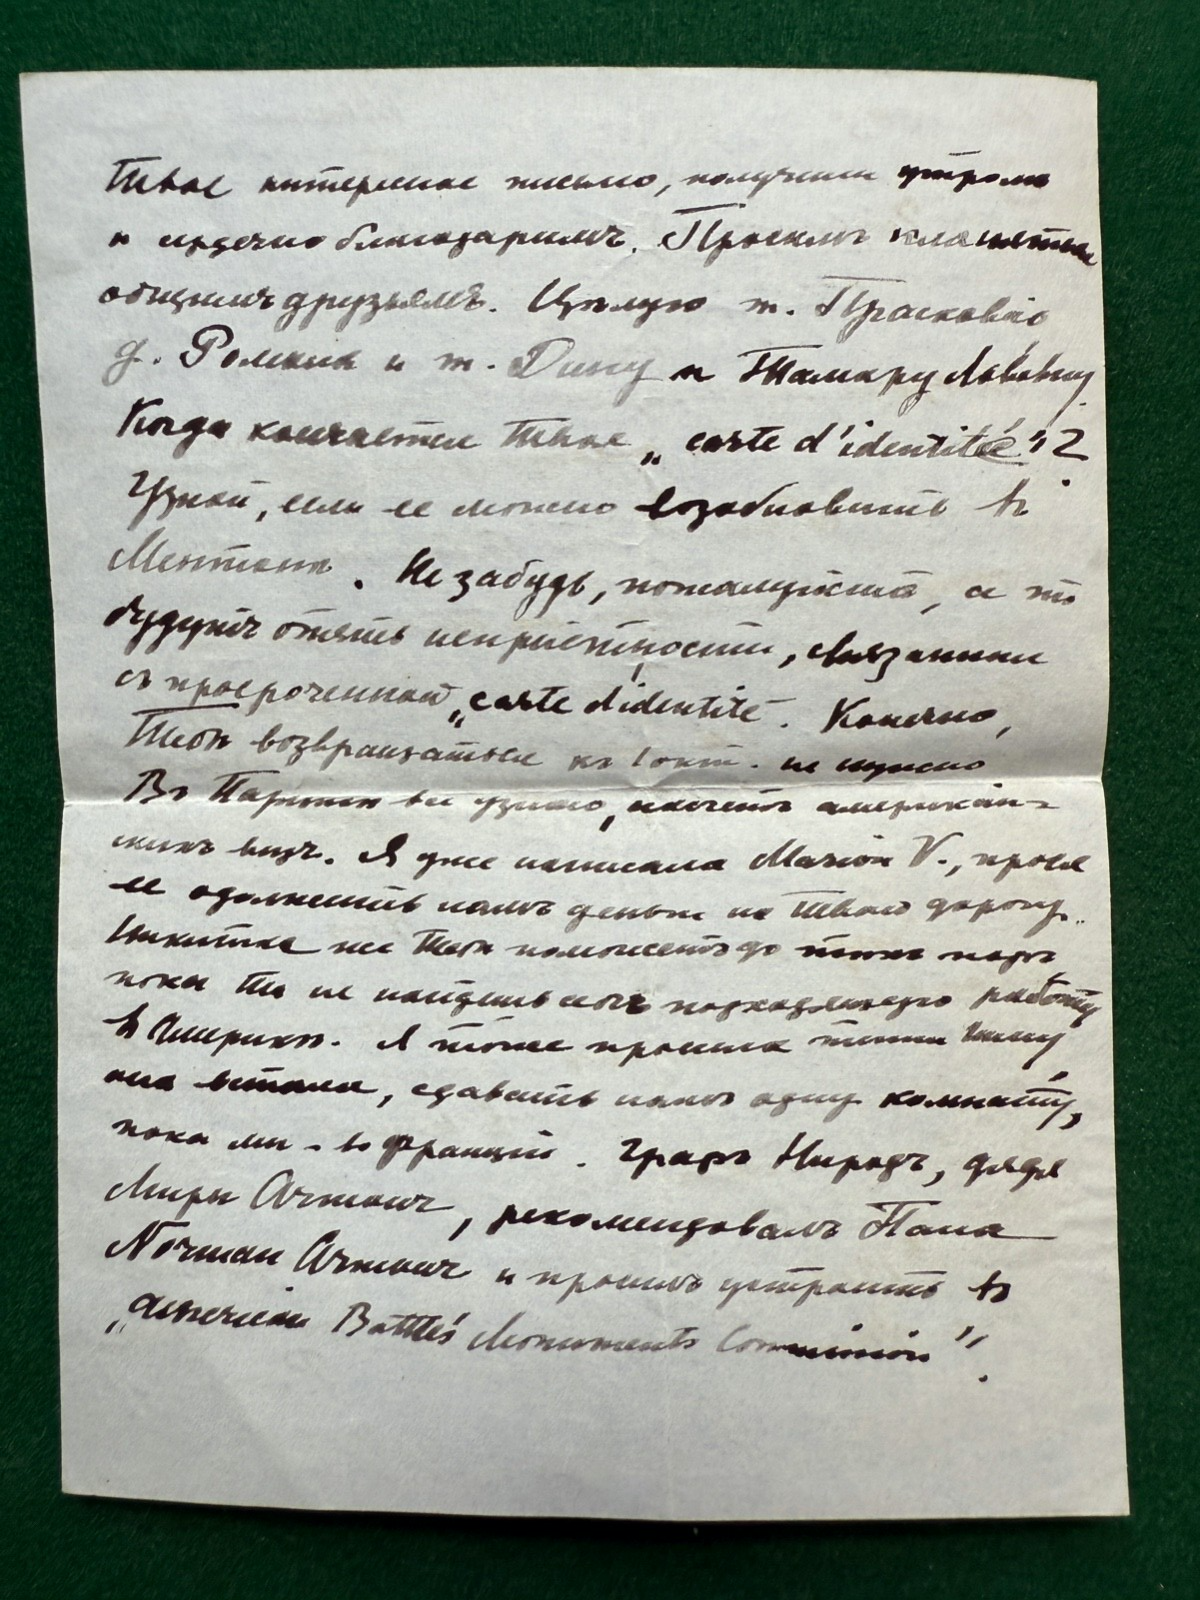 Твое интересное письмо, получили утромъ
и сердечно благодаримъ. Просимъ кланяться
общимъ друзьямъ. Цѣлую т. Прасковію
д. Романа и т. Дину и Тамару Львовну
Когда кончается твое „carte d'identité"?
Узнай, если ее можно возобновить въ
Ментонѣ. Не забудь, пожалуйста, а то
будутъ опять непріятности, связанныя
съ просроченной „carte d'identité". Конечно,
Тебѣ возвращаться къ 1 окт. не нужно
Въ Парижѣ все узнаю, насчетъ американ=
скихъ визъ. Я уже написала Marion V., прося
ее одолжить намъ деньги на твою дорогу.
Никитка же Тебѣ поможетъ до тѣхъ поръ
пока Ты не найдешь себѣ подходящую работу
въ Америкѣ. Я тоже просила тетю
она встала, сдавать намъ одну комнату,
пока мы - во Франціи. Графъ Ниродъ, дядя
Миры Armour, рекомендовалъ Папа
Norman Armour и просилъ устроить въ
„American Battle's Monuments Commission".